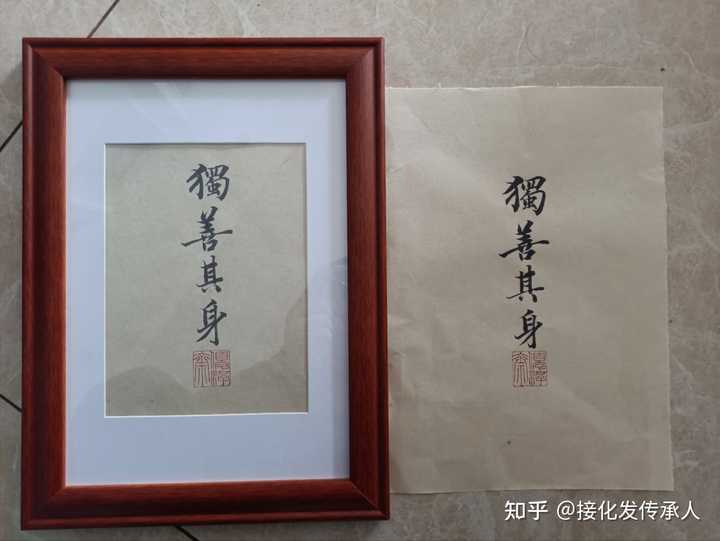 獨善其身
獨善其身
知乎 @接化发传承人